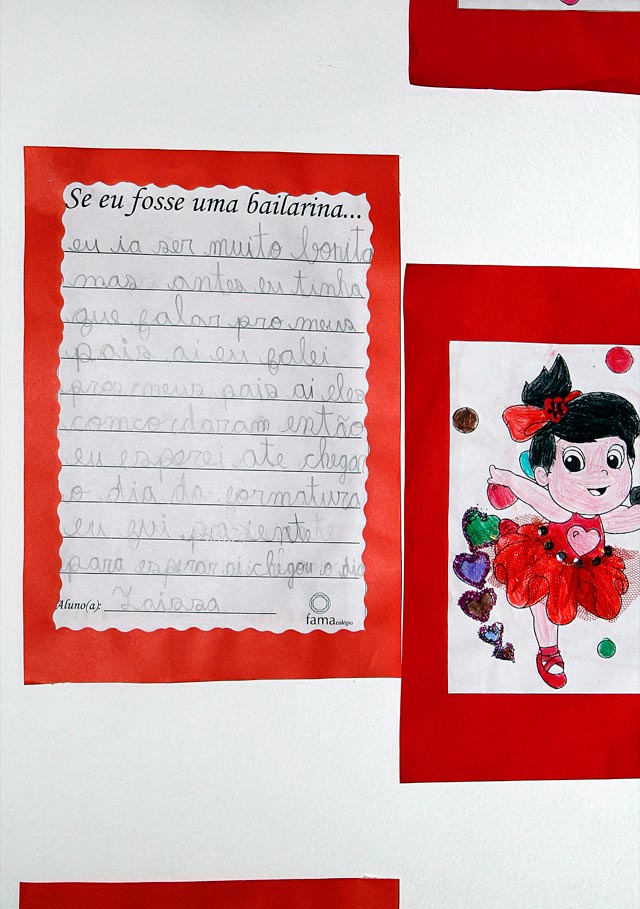 Se eu fosse uma bailarina...
eu ia ser muito bonita
mas antes eu tinha
que falar pro meus
pais ai eu falei
pros meus pais ai eles
concordaram então
eu esperei ate chegar
o dia da formatura
eu fui paciente
para esperar ai chegou o dia
Aluno(a): Laissa
fama colégio